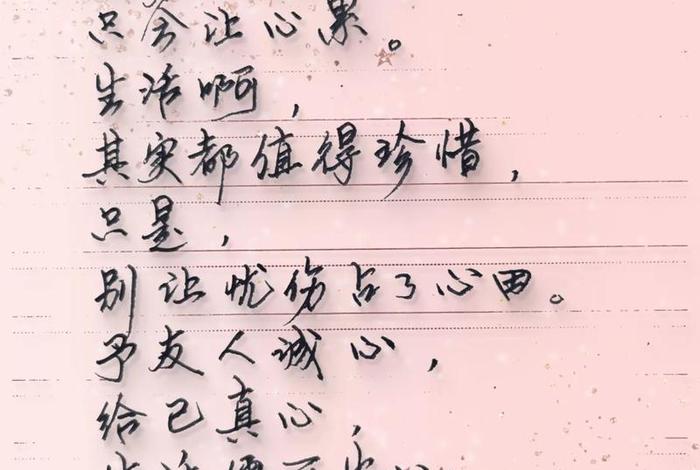 只会让心累。
生活啊，
其实都值得珍惜，
只是，
别让忧伤占了心田。
予友人诚心，
给己真心，